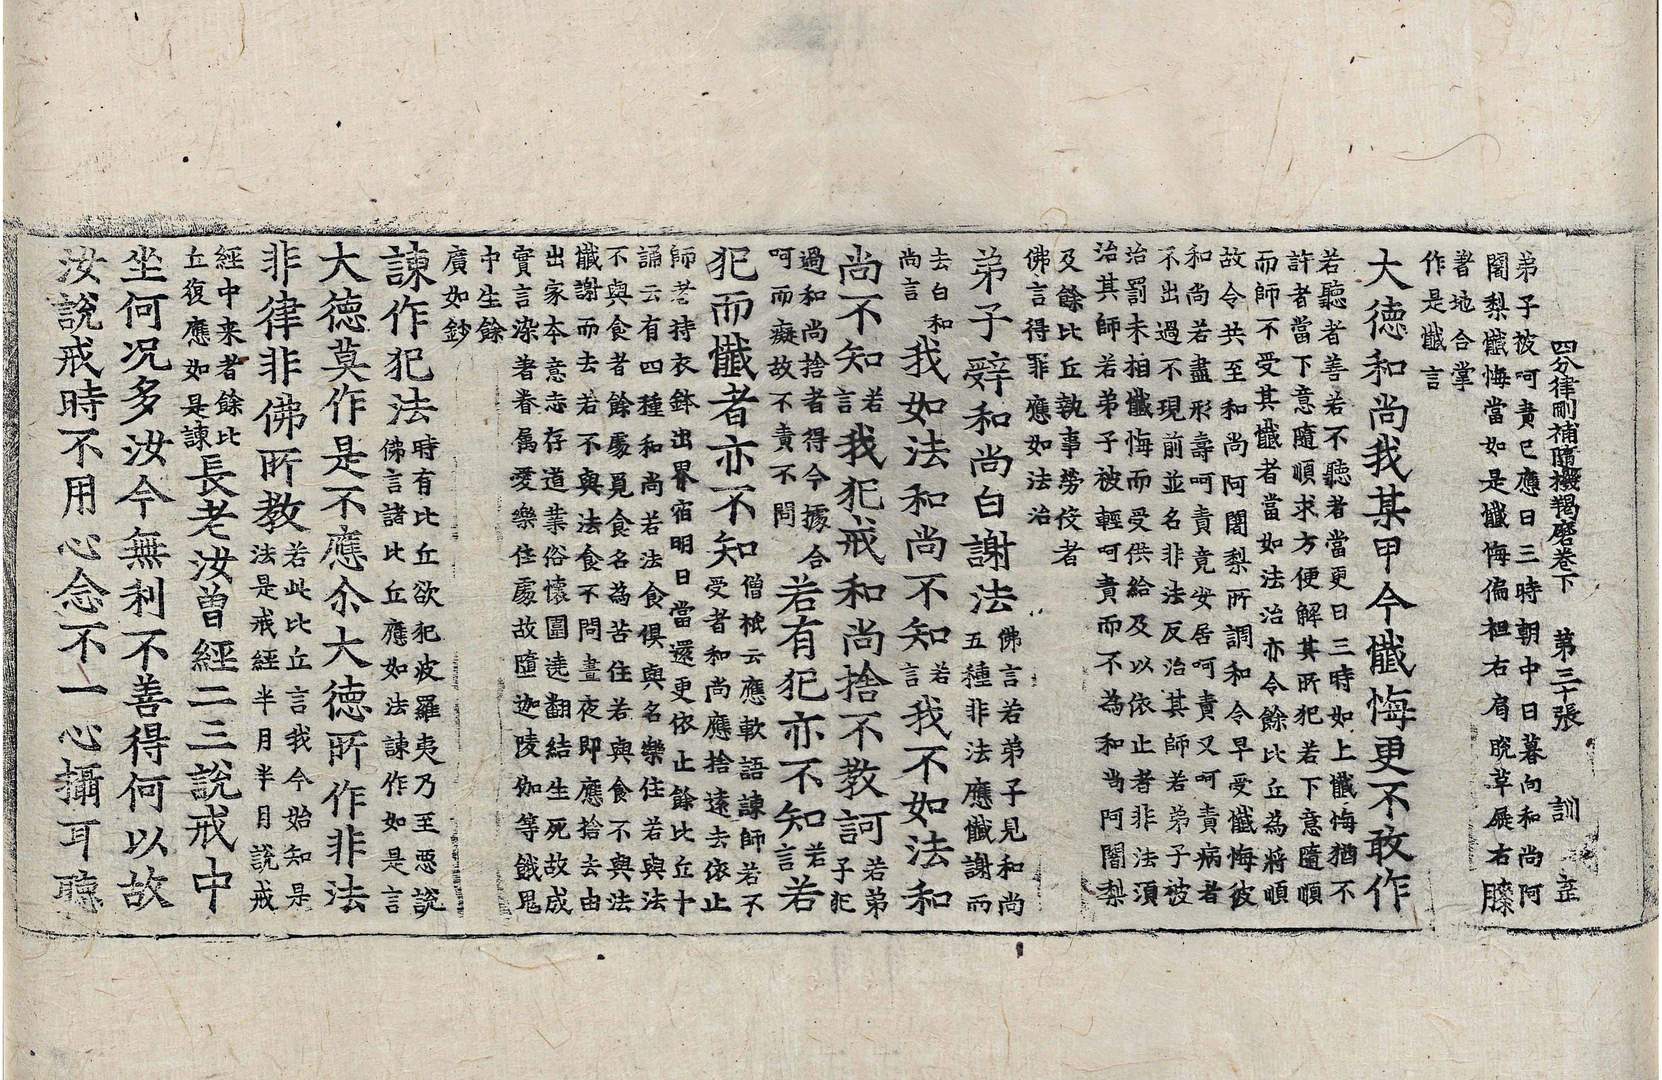 四分律刪補隨機羯磨卷下 第三十張 訓
弟子被呵責已應日三時朝中日暮向和尚阿
闍梨懺悔當如是懺悔偏袒右肩脫草屣右膝
著地合掌
作是懺言
大德和尚我某甲今懺悔更不敢作
若聽者善若不聽者當更日三時如上懺悔猶不
許者當下意隨順求方便解其所犯若下意隨順
而師不受其懺者當如法治亦令餘比丘為將順
故令共至和尚阿闍梨所調和令早受懺悔彼
和尚若盡形壽呵責竟安居呵責又呵責病者
不出過不現前並名非法反治其師若弟子被
治罰未相懺悔而受供給及以依止者非法須
治其師若弟子被輕呵責而不為和尚阿闍梨
及餘比丘執事勞役者
佛言得罪應如法治
弟子辭和尚白謝法
佛言若弟子見和尚
五種非法應懺謝而
去白和
尚言
我如法和尚不知
若
言
我不如法和
尚不知
若
言
我犯戒和尚捨不教訶
若弟
子犯
過和尚捨者得今據合
呵而癡故不責不問
若有犯亦不知
若
言
若
犯而懺者亦不知
僧祇云應軟語諫師若不
受者和尚應捨遠去依止
師若持衣鉢出界宿明日當還更依止餘比丘十
誦云有四種和尚若法食俱與名樂住若與法
不與食者餘處覓食名為苦住若與食不與法
懺謝而去若不與法食不問晝夜即應捨去由
出家本意志存道業俗懷圍遶翻結生死故成
實言染著眷属愛樂住處故墮迦陵伽等餓鬼
中生餘
廣如鈔
諫作犯法
時有比丘欲犯波羅夷乃至惡說
佛言諸比丘應如法諫作如是言
大德莫作是不應尒大德所作非法
非律非佛所教
若此比丘言我今始知是
法是戒經半月半月說戒
經中来者餘比
丘復應如是諫
長老汝曾經二三說戒中
坐何况多汝今無利不善得何以故
汝說戒時不用心念不一心攝耳聽